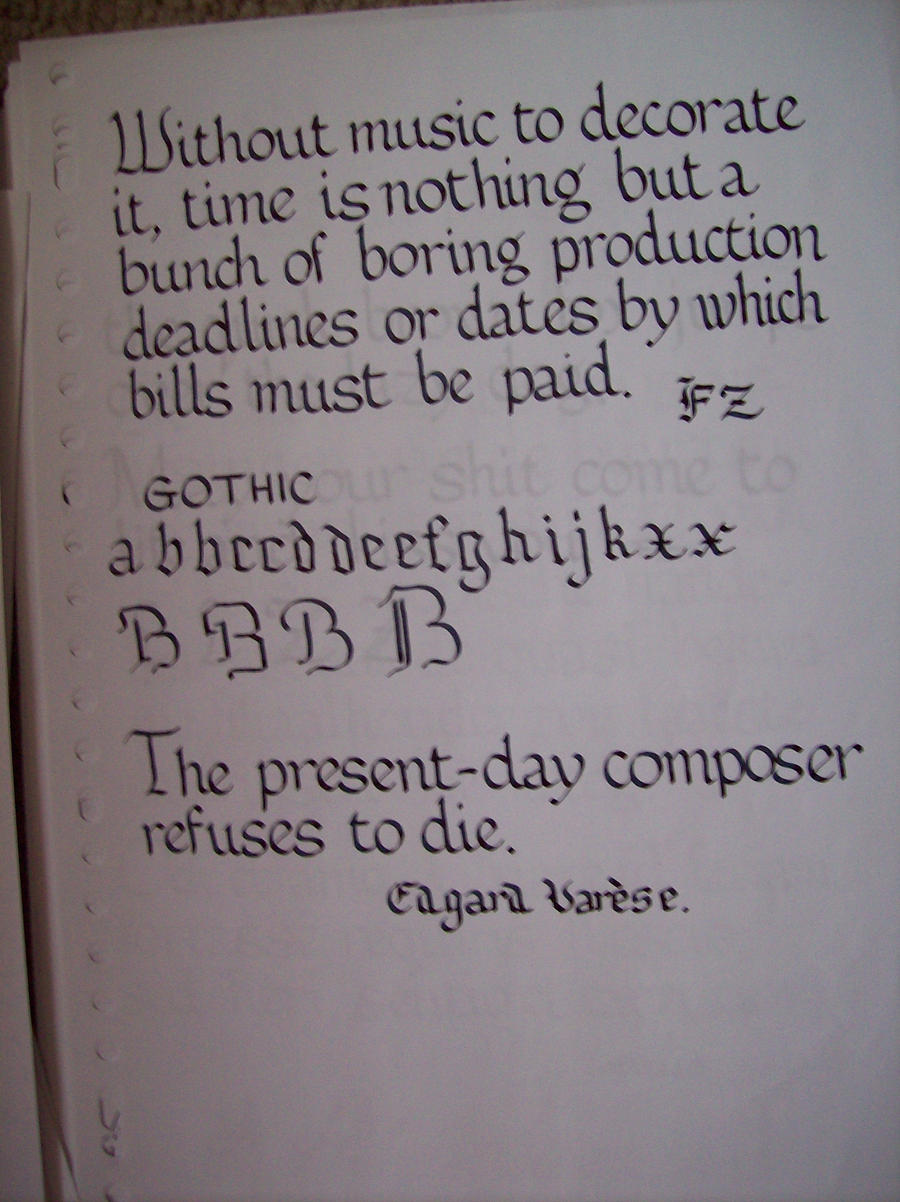 Without music to decorate
it, time is nothing but a
bunch of boring production
deadlines or dates by which
bills must be paid. FZ
GOTHIC
a b b c c d d e e f g h i j k x x
B B B B
The present-day composer
refuses to die.
Edgard Varèse.